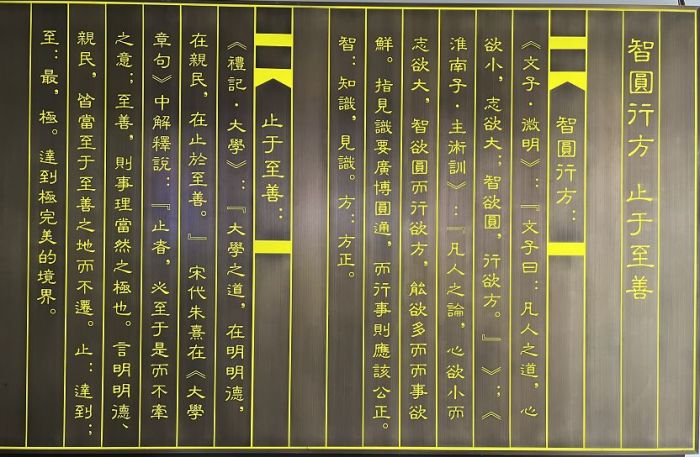 智圓行方 止于至善
智圓行方：
《文子·微明》：『文子曰：凡人之道，心
欲小，志欲大；智欲圓，行欲方。』》；《
淮南子·主術訓》：『凡人之論，心欲小而
志欲大，智欲圓而行欲方，能欲多而而事欲
鮮。指見識要廣博圓通，而行事則應該公正。
智：知識，見識。方：方正。
止于至善：
《禮記·大學》：『大學之道，在明明德，
在親民，在止於至善。』 宋代朱熹在《大學
章句》中解釋說：『止者，必至于是而不牽
之意；至善，則事理當然之極也。言明明德、
親民，皆當至于至善之地而不遷。止：達到；
至：最，極。達到極完美的境界。